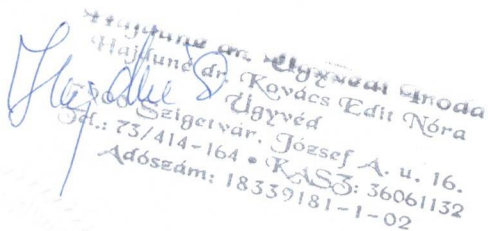 Hajduné dr. Ügyvédi Iroda
Hajduné dr. Kovács Edit Nóra
Ügyvéd
Szigetvár, József A. u. 16.
73/414-164 • KASZ: 36061132
Adószám: 18339181-1-02